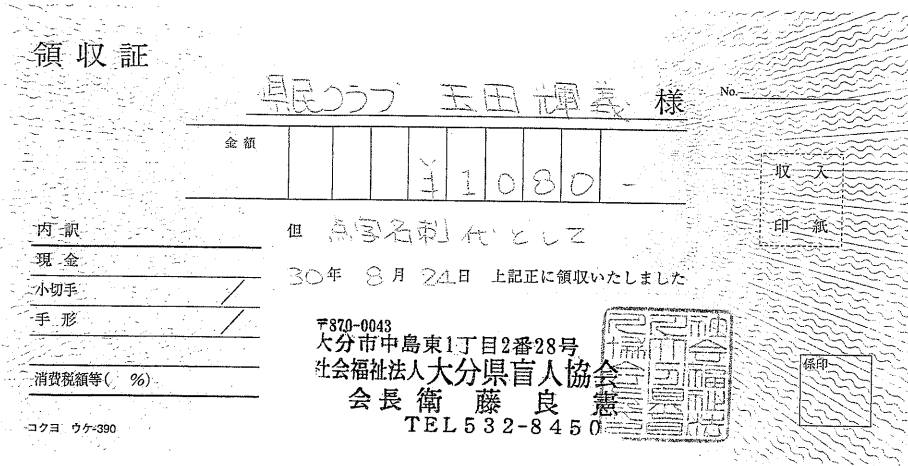 領収証
県民クラブ 玉田輝義 様
No.
金額
¥1080-
収入
印紙
内訳
但 点字名刺代として
現金
30年 8月 24日 上記正に領収いたしました
小切手
手形
〒870-0043
大分市中島東1丁目2番28号
社会福祉法人大分県盲人協会
会長 衛藤良憲
TEL532-8450
消費税額等( %)
係印
コクヨ ウケ-390